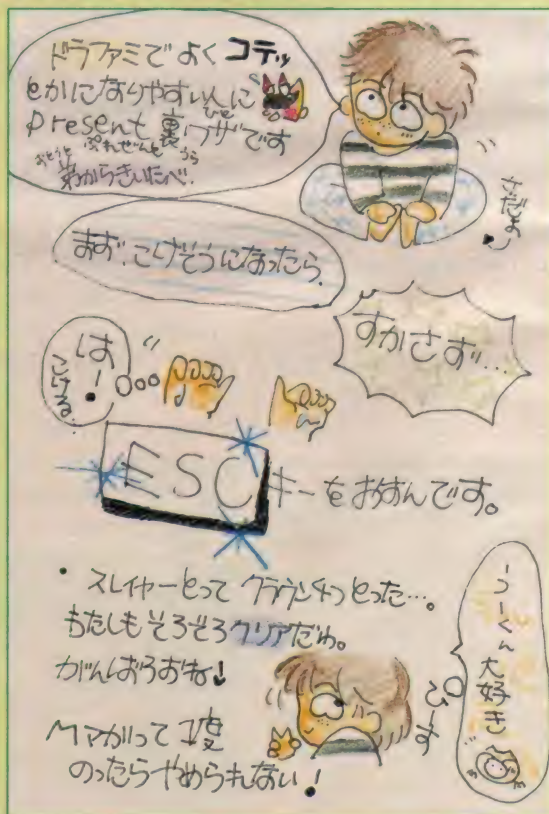 ドラファミで よく コテッ
とかになりやすい人に
ひと
present 裏ワザです
おとうと ぷれぜんと うら
弟からきいたべ。
まず、こけそうになったら、
すかさず…
はー!
こける。
ESC キーをおすんです。
・スレイヤーとって クラウン4つとった…。
もたしも そろそろクリアだわ。
がんばろおね!
Mマガって 1度
のったらやめられない!
つーくん大好き